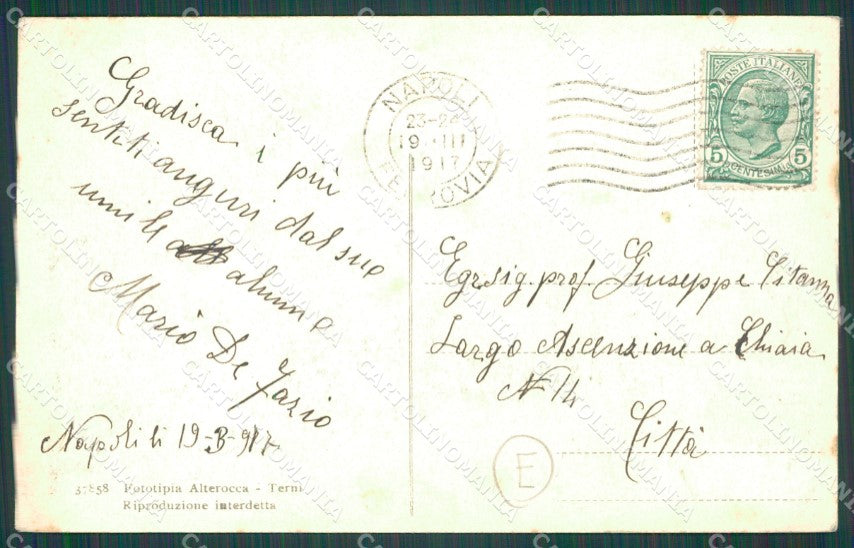 Gradisca i più
sentiti auguri dal suo
umile alunno
Mario De Fazio
Napoli li 19-3-917
37858 Fototipia Alterocca - Terni
Riproduzione interdetta
NAPOLI
19 III
1917
FERROVIA
POSTE ITALIANE
5 5
CENTESIMI
Egr sig. prof. Giuseppe Citanna
Largo Ascenzione a Chiaia
N 14
Città
E
CARTOLINOMANIA